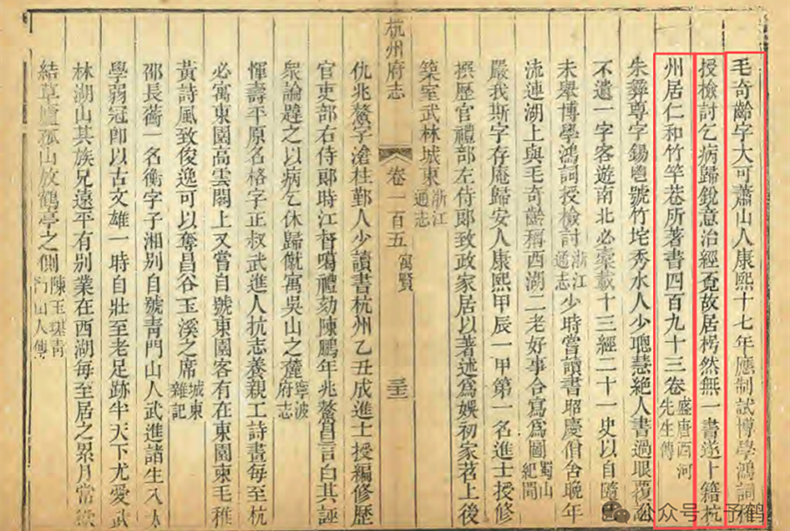 毛奇齡字大可蕭山人康熙十七年應制試博學鴻詞科
授檢討乞病歸銳意治經覔故居枵然無一書遂卜籍杭
州居仁和竹竿巷所著書四百九十三卷盛唐西河先生傳
朱彝尊字錫鬯號竹垞秀水人少聰慧絕人書過眼覆誦
不遺一字客遊南北必橐載十三經二十一史以自隨
舉博學鴻詞授檢討浙江通志少時嘗讀書昭慶僧舍晚年
流連湖上與毛奇齡稱西湖二老好事合寫為圖蜀山紀聞
嚴我斯字存庵歸安人康熙甲辰一甲第一名進士授修
撰歷官禮部左侍郎致政家居以著述為娛初家苕上後
築室武林城東浙江通志
杭州府志 卷一百五 寓賢
仇兆鰲字滄柱鄞人少讀書杭州乙丑成進士授編修歷
官吏部右侍郎時江督噶禮劾陳鵬年兆鰲昌言白其誣
眾論韙之以病乞休歸僦寓吳山之麓寧波府志
惲壽平原名格字正叔武進人抗志養親工詩畫每至杭
必寓東園高雲閣上又嘗自號東園客有在東園柬毛稚
黃詩風致俊逸可以奪昌谷玉溪之席城東雜記
邵長蘅一名衡字子湘別自號青門山人武進諸生入太
學弱冠即以古文雄一時自壯至老足跡半天下尤愛武
林湖山其族兄遠平有別業在西湖每至居之累月常欲
結草廬孤山放鶴亭之側陳玉璂青門山人傳
公众号 · 予鹤